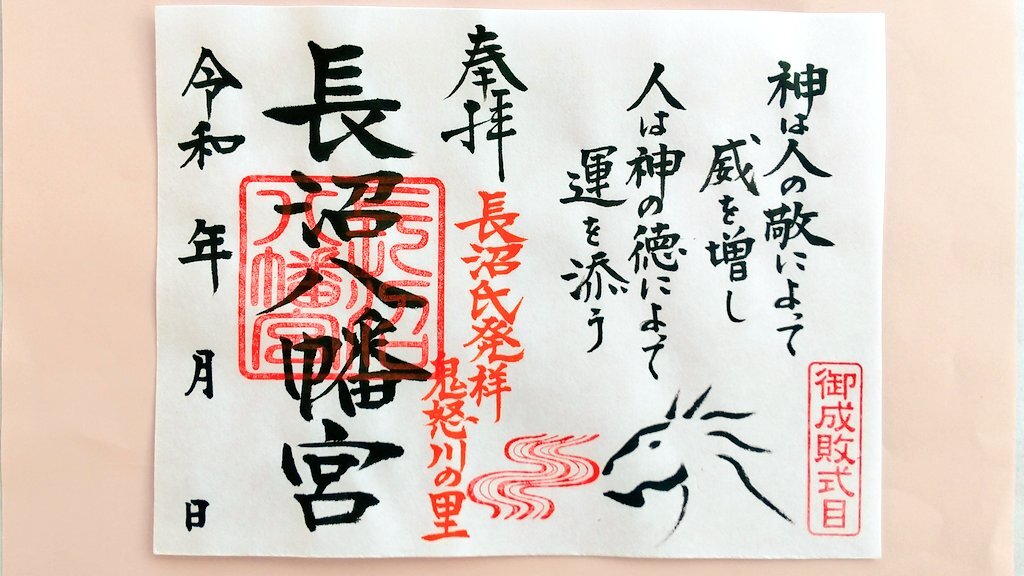 神は人の敬によって
威を増し
人は神の徳によって
運を添う
御成敗式目
奉拝
長沼氏発祥
鬼怒川の里
長沼八幡宮
長沼
八幡宮
令和 年 月 日